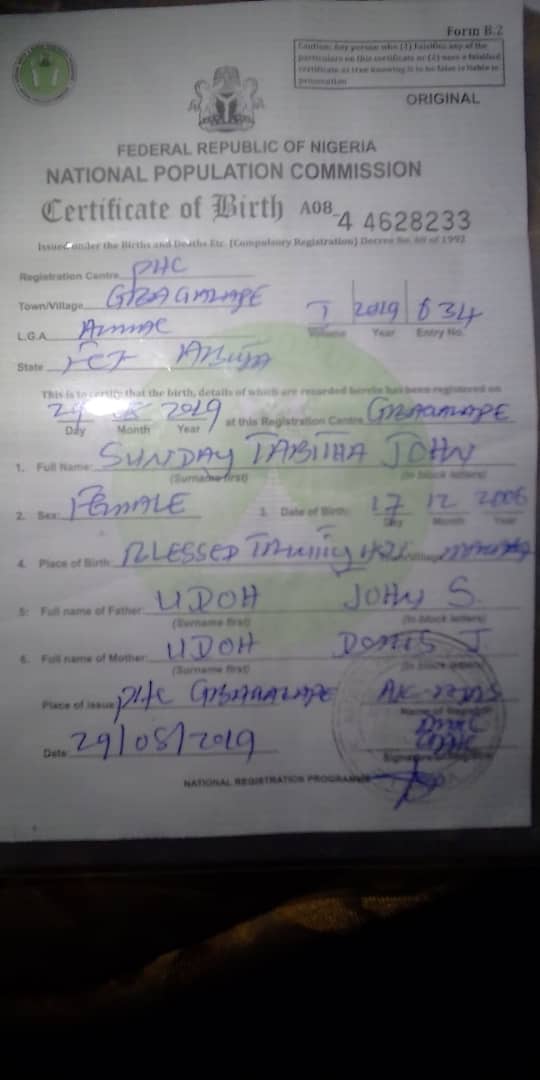 Form B.2
Caution: Any person who (1) Falsifies any of the
particulars on this certificate or (2) uses a falsified
certificate as true knowing it to be false is liable to
prosecution
ORIGINAL
FEDERAL REPUBLIC OF NIGERIA
NATIONAL POPULATION COMMISSION
Certificate of Birth A08 4 4628233
Issued under the Births and Deaths Etc. [Compulsory Registration] Decree No. 69 of 1992
Registration Centre PHC
Town/Village GBAGALAPE
L.G.A AMAC I 2019 634
Volume Year Entry No.
State FCT ABUJA
This is to certify that the birth, details of which are recorded herein has been registered on
29 2019 at this Registration Centre GBAGALAPE
Day Month Year
1. Full Name: SUNDAY TABITHA JOHN
(Surname first) (In block letters)
2. Sex: FEMALE 3. Date of Birth: 17 12 2006
Day Month Year
4. Place of Birth: BLESSED TRINITY
5: Full name of Father: UDOH JOHN S.
(Surname first) (In block letters)
6. Full name of Mother: UDOH DORIS J
(Surname first) (In block letters)
Place of issue PHC GBAGALAPE
Name of Registrar
Date 29/08/2019
Signature of Registrar
NATIONAL REGISTRATION PROGRAMME